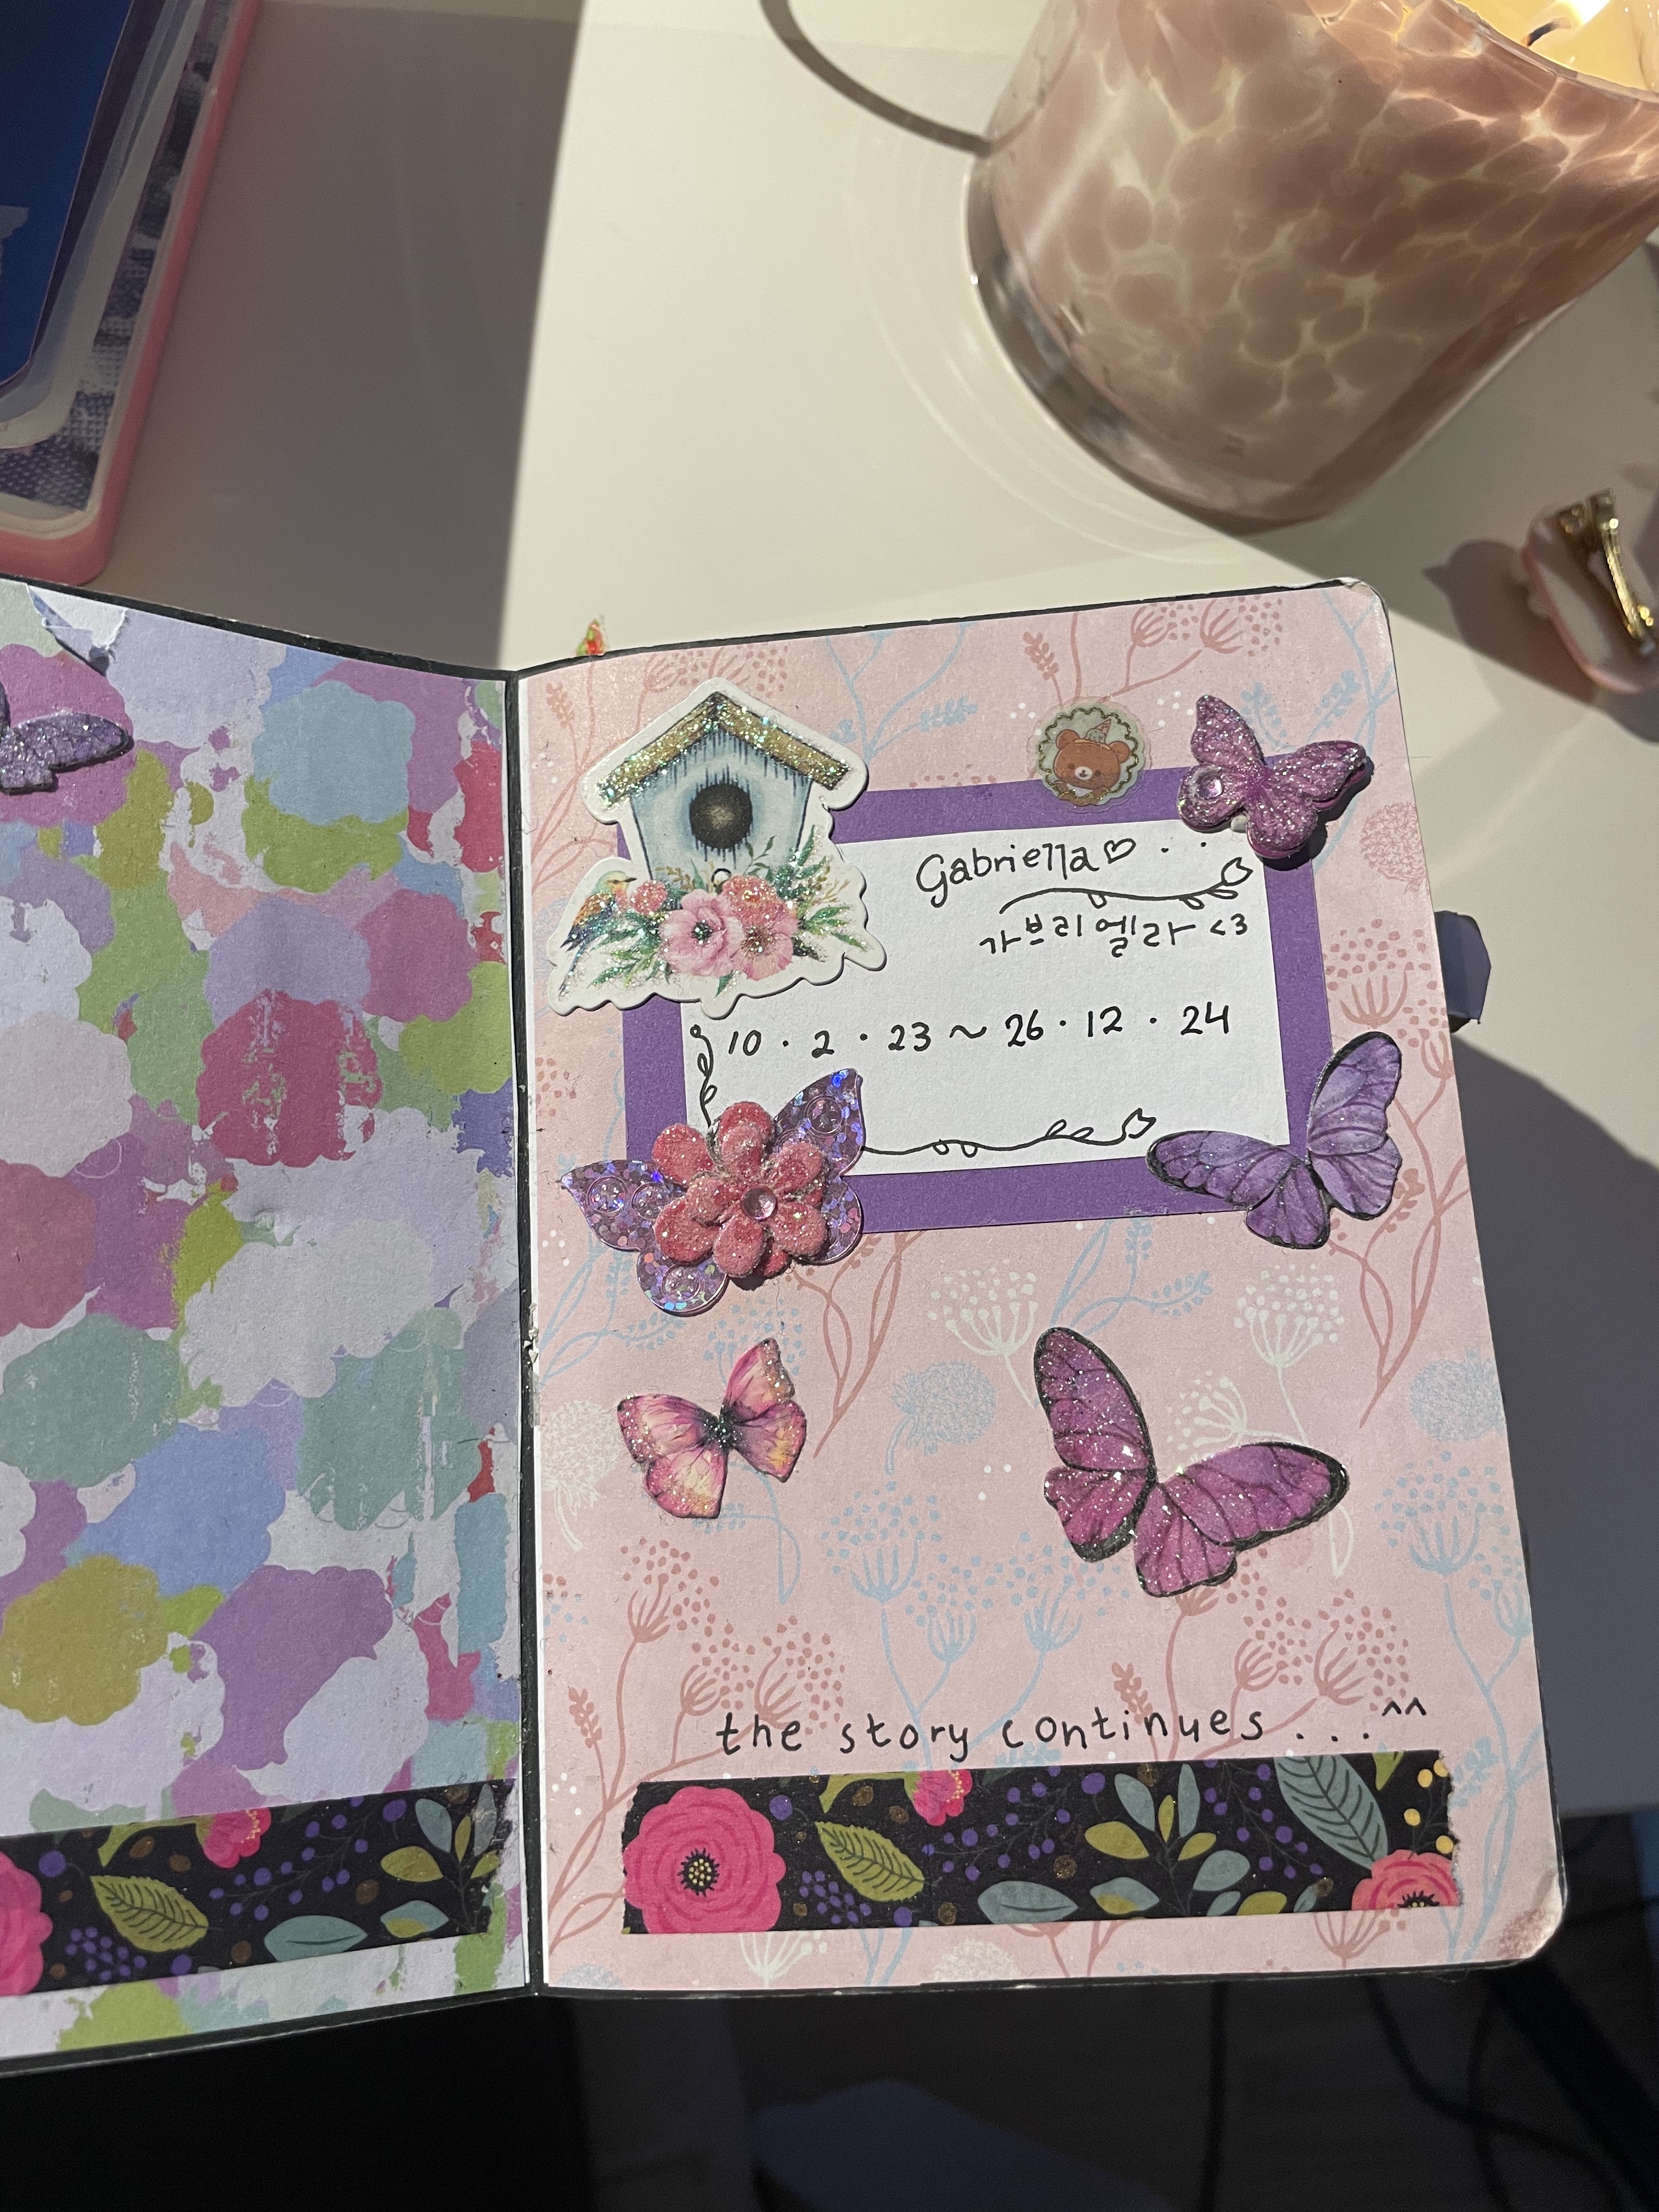 Gabriella♡ · · ·
가브리엘라 <3
10 · 2 · 23 ~ 26 · 12 · 24
the story continues . . . ^^